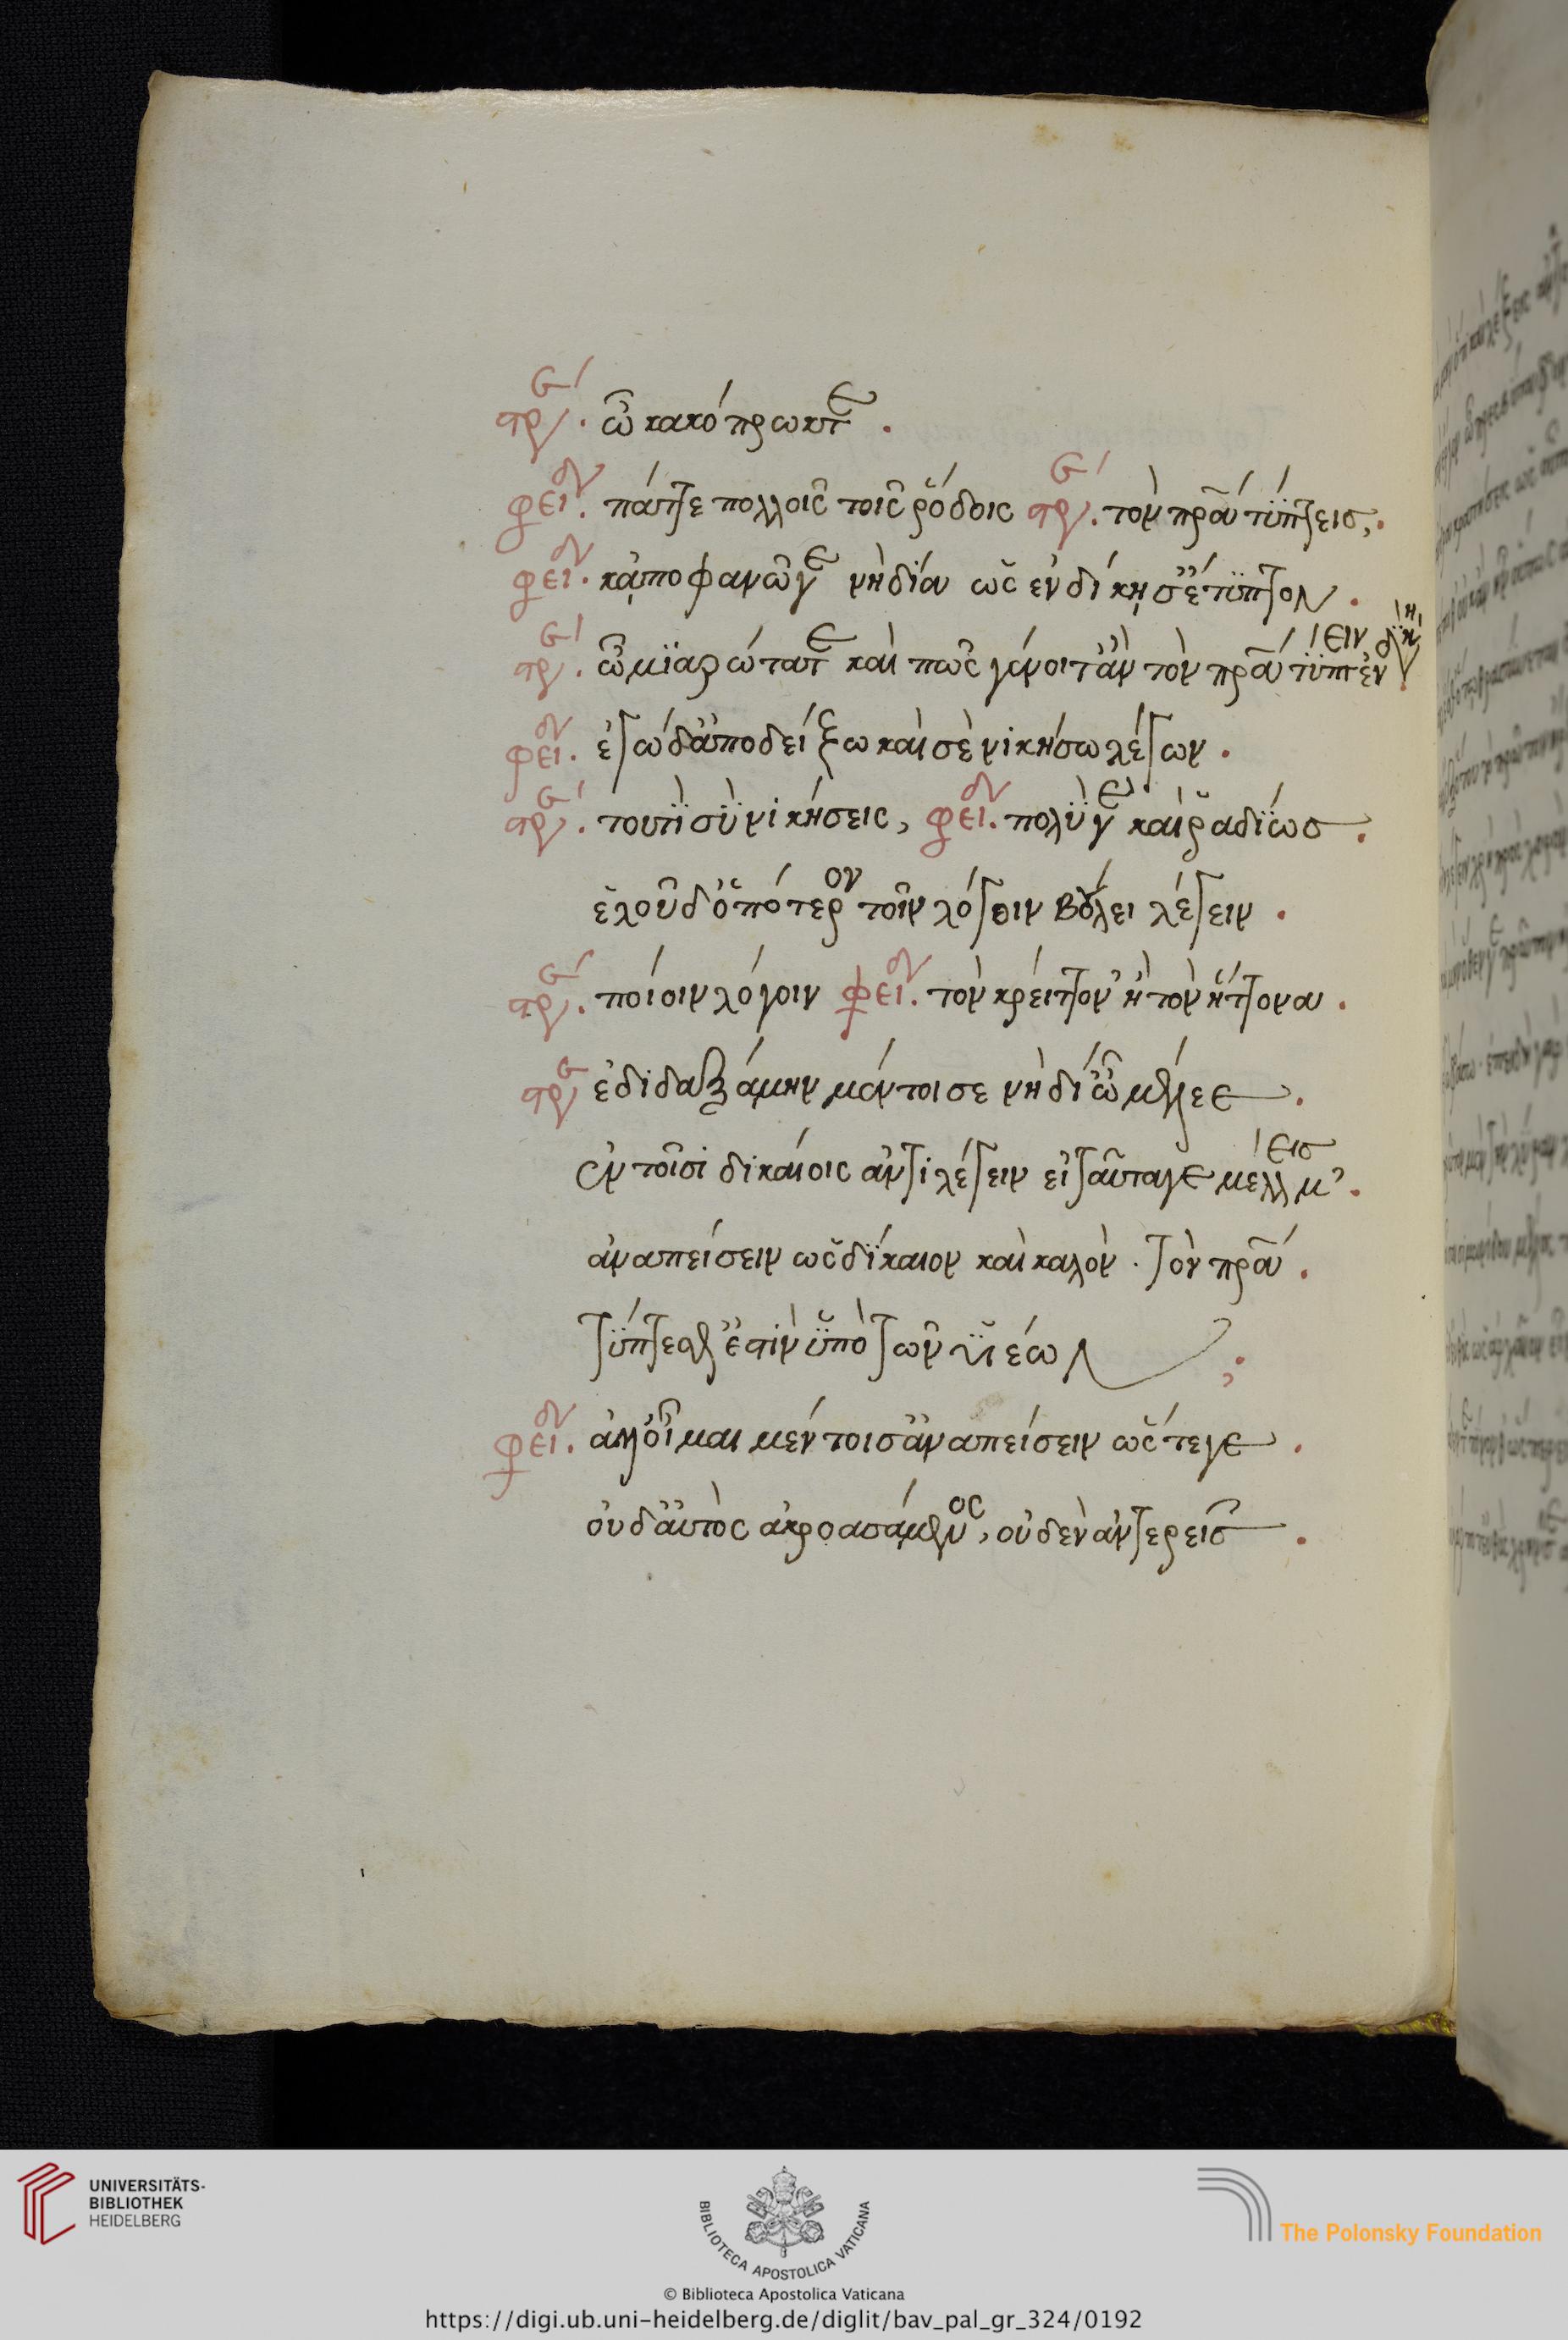 στρε. ὦ κακόπρωκτε.
φειδ. πάττε πολλοῖς τοῖς ῥόδοις στρε. τὸν πρ̅α τύπτεις;
φειδ. κἀποφανῶ γε νὴ δία ὡς ἐν δίκῃ σ' ἔτυπτον.
στρε. ὦ μϊαρώτατε καὶ πῶς γένοιτ' ἂν τὸν πρ̅α τύπτειν ἐν δίκῃ.
φειδ. ἐγώ δ' ἀποδείξω καὶ σὲ νικήσω λέγων.
στρε. τουτὶ σὺ νικήσεις, φειδ. πολύ γε καὶ ῥαδίως.
ἑλοῦ δ' ὁπότερον τοῖν λόγοιν βούλει λέγειν.
στρε. ποίοιν λόγοιν φειδ. τὸν κρείττον' ἢ τὸν ἥττονα.
στρε ἐδιδαξάμην μέντοι σε νὴ δί' ὦ μέλεε.
ἐν τοῖσι δικαίοις ἀντιλέγειν εἰ ταῦτα γε μέλλεις μ'.
ἀναπείσειν ὡς δίκαιον καὶ καλὸν. τὸν πρ̅α.
τύπτεσθ' ἐστὶν ὑπὸ τῶν υἱέων;
φειδ. ἀλλ' οἶμαι μέντοι σ' ἀναπείσειν ὥς τε γε.
οὐδ' αὐτὸς ἀκροασάμενος, οὐδεν ἀντερεῖς.
UNIVERSITÄTS-
BIBLIOTHEK
HEIDELBERG
BIBLIOTECA APOSTOLICA VATICANA
The Polonsky Foundation
© Biblioteca Apostolica Vaticana
https://digi.ub.uni-heidelberg.de/diglit/bav_pal_gr_324/0192